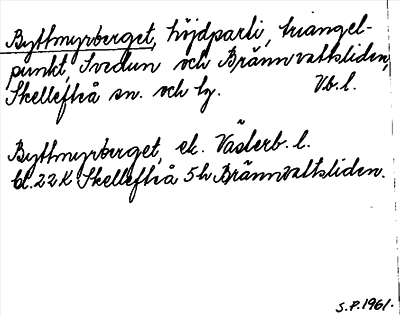 Byttmyrberget, höjdparti, triangel-
punkt, Svedun och Brännvattsliden,
Skellefteå sn. och lg. Vb.l.
Byttmyrberget, ek. Västerb. l.
bl. 22K Skellefteå 5h Brännvattsliden.
S.P. 1961.